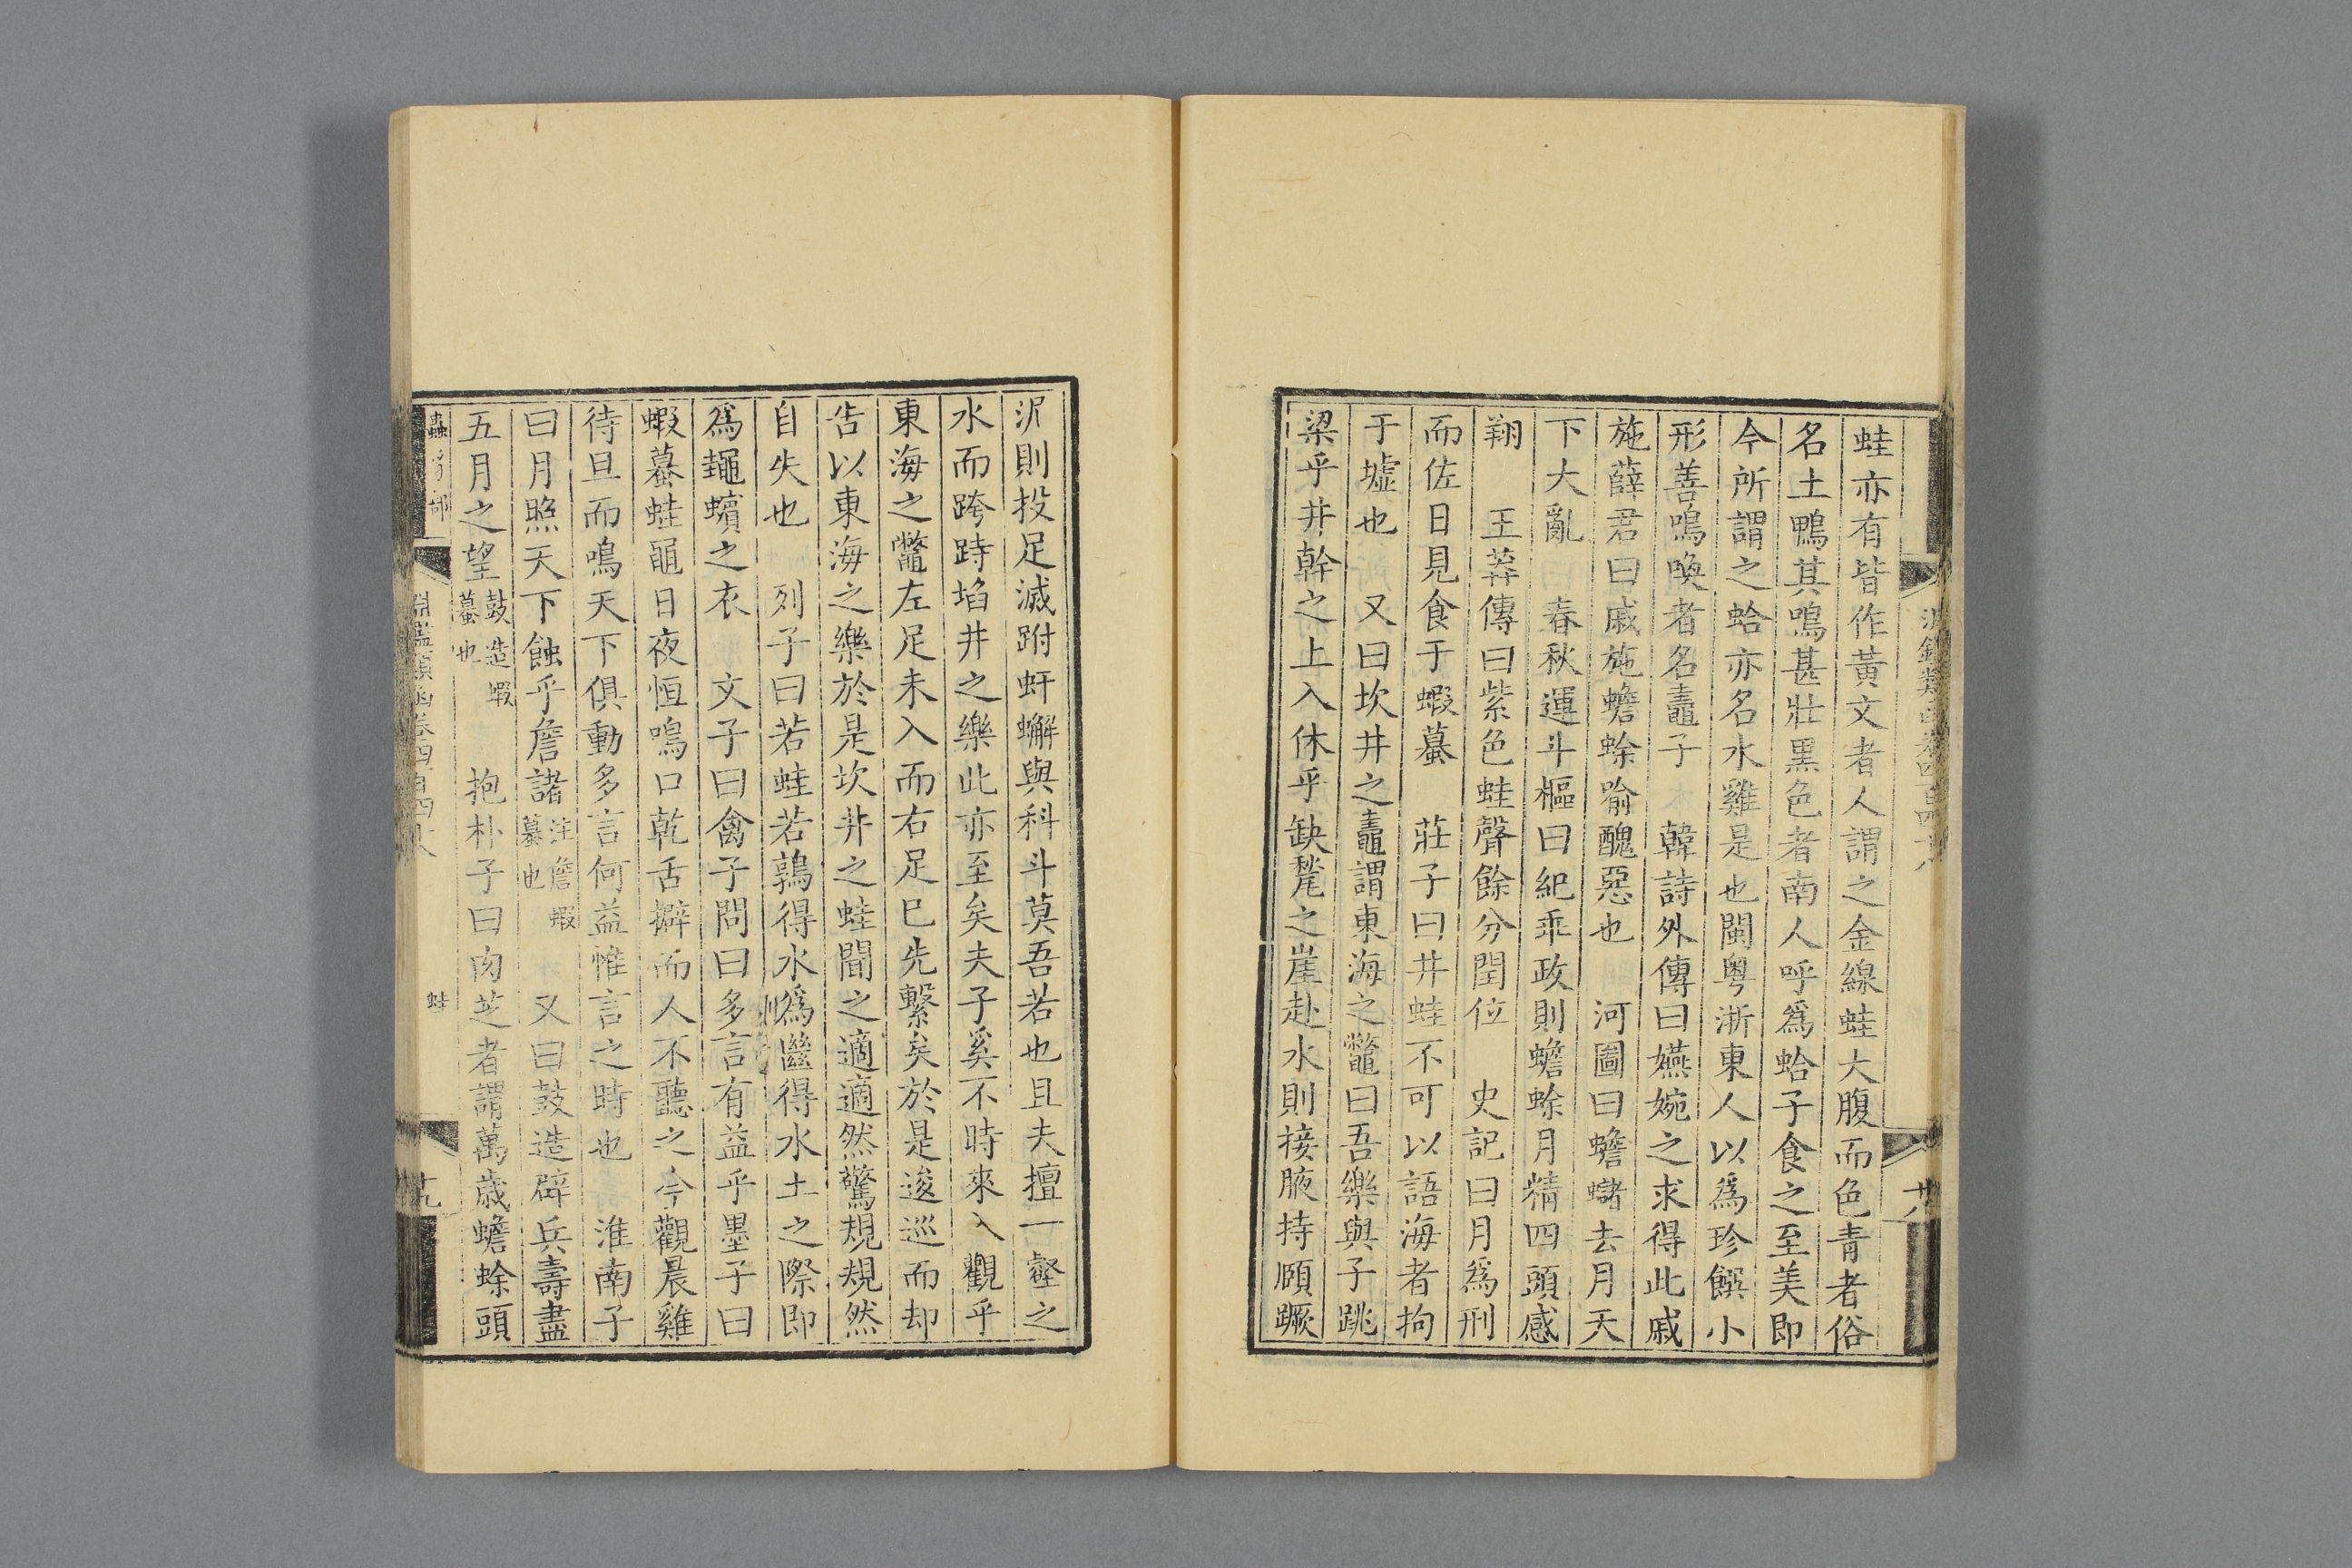 蛙亦有皆作黃文者人謂之金線蛙大腹而色青者俗
名土鴨其鳴甚壯黑色者南人呼爲蛤子食之至美即
今所謂之蛤亦名水雞是也閩粤浙東人以爲珍饌小
形善鳴喚者名鼃子　韓詩外傳曰嬿婉之求得此戚
施薛君曰戚施蟾蜍喻醜惡也　河圖曰蟾蠩去月天
下大亂　春秋運斗樞曰紀乖政則蟾蜍月精四頭感
翔　王莽傳曰紫色蛙聲餘分閏位　史記曰月爲刑
而佐日見食于蝦蟇　莊子曰井蛙不可以語海者拘
于墟也　又曰坎井之鼃謂東海之鼈曰吾樂與子跳
梁乎井幹之上入休乎缺甃之崖赴水則接腋持頤蹶
泥則投足滅跗虷蠏與科斗莫吾若也且夫擅一壑之
水而跨跱埳井之樂此亦至矣夫子奚不時來入觀乎
東海之鼈左足未入而右足已先繫矣於是逡巡而却
告以東海之樂於是坎井之蛙聞之適適然驚規規然
自失也　列子曰若蛙若鶉得水爲㡭得水土之際即
爲䵷蠙之衣　文子曰禽子問曰多言有益乎墨子曰
蝦蟇蛙黽日夜恒鳴口乾舌擗而人不聽之今觀晨雞
待旦而鳴天下俱動多言何益惟言之時也　淮南子
曰月照天下蝕乎詹諸注詹蝦蟇也　又曰鼓造辟兵壽盡
五月之望鼓造蝦蟇也　抱朴子曰肉芝者謂萬歲蟾蜍頭
蟲豸部
淵鑑類函卷四百四十八
蛙
十九